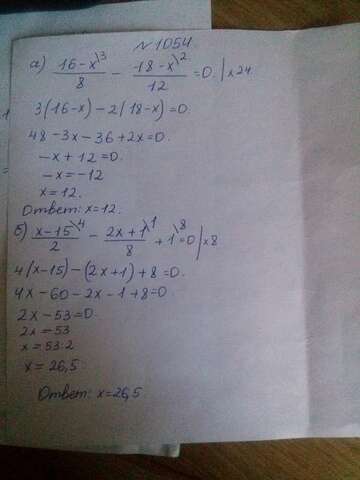 №1054.
а) (16-x\3)/8 - (18-x\2)/12 = 0 |x24
3(16-x)-2(18-x)=0.
48-3x-36+2x=0.
-x+12=0.
-x=-12
x=12.
Ответ: x=12.
б) (x-15\4)/2 - (2x+1\1)/8 + 1\8=0 |x8
4(x-15)-(2x+1)+8=0.
4x-60-2x-1+8=0.
2x-53=0.
2x=53
x=53:2
x=26,5.
Ответ: x=26,5